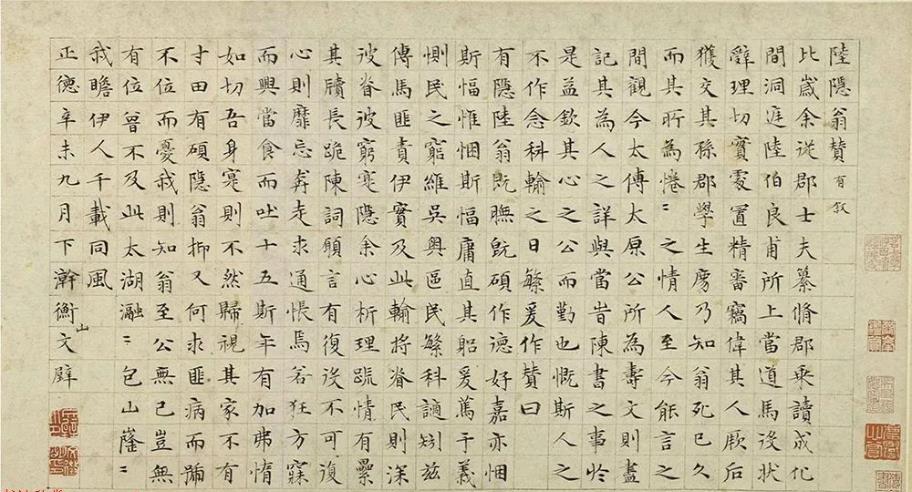 陸隱翁贊有叙
比歲余從郡士夫纂脩郡乘讀成化
間洞庭陸伯良甫所上當道馬沒狀
辭理切實處置精審竊偉其人厥后
獲交其孫郡學生麐乃知翁死已久
而其所為惓〻之情人至今能言之
間觀今太傅太原公所為壽文則盡
記其為人之詳與當旹陳書之事於
是益欽其心之公而勤也慨斯人之
不作念科輸之日繁爰作贊曰
有隱陸翁旣膴旣碩作德好嘉亦悃
斯愊惟悃斯愊庸直其躬爰篤于義
惻民之窮維吳奥區民繁科讁矧兹
傳馬匪責伊實及此輸將眘民則深
彼眘彼窮寔隱余心析理疏情有纍
其牘長跪陳詞願言有復沒不可復
心則靡忘奔走求通悵焉若狂方寐
而興當食而吐十五斯年有加弗惰
如切吾身寔則不然歸視其家不有
寸田有碩隱翁抑又何求匪病而痌
不位而憂我則知翁至公無已豈無
有位曾不及此太湖瀜〻包山蓥〻
我瞻伊人千載同風
正德辛未九月下澣衡山文壁